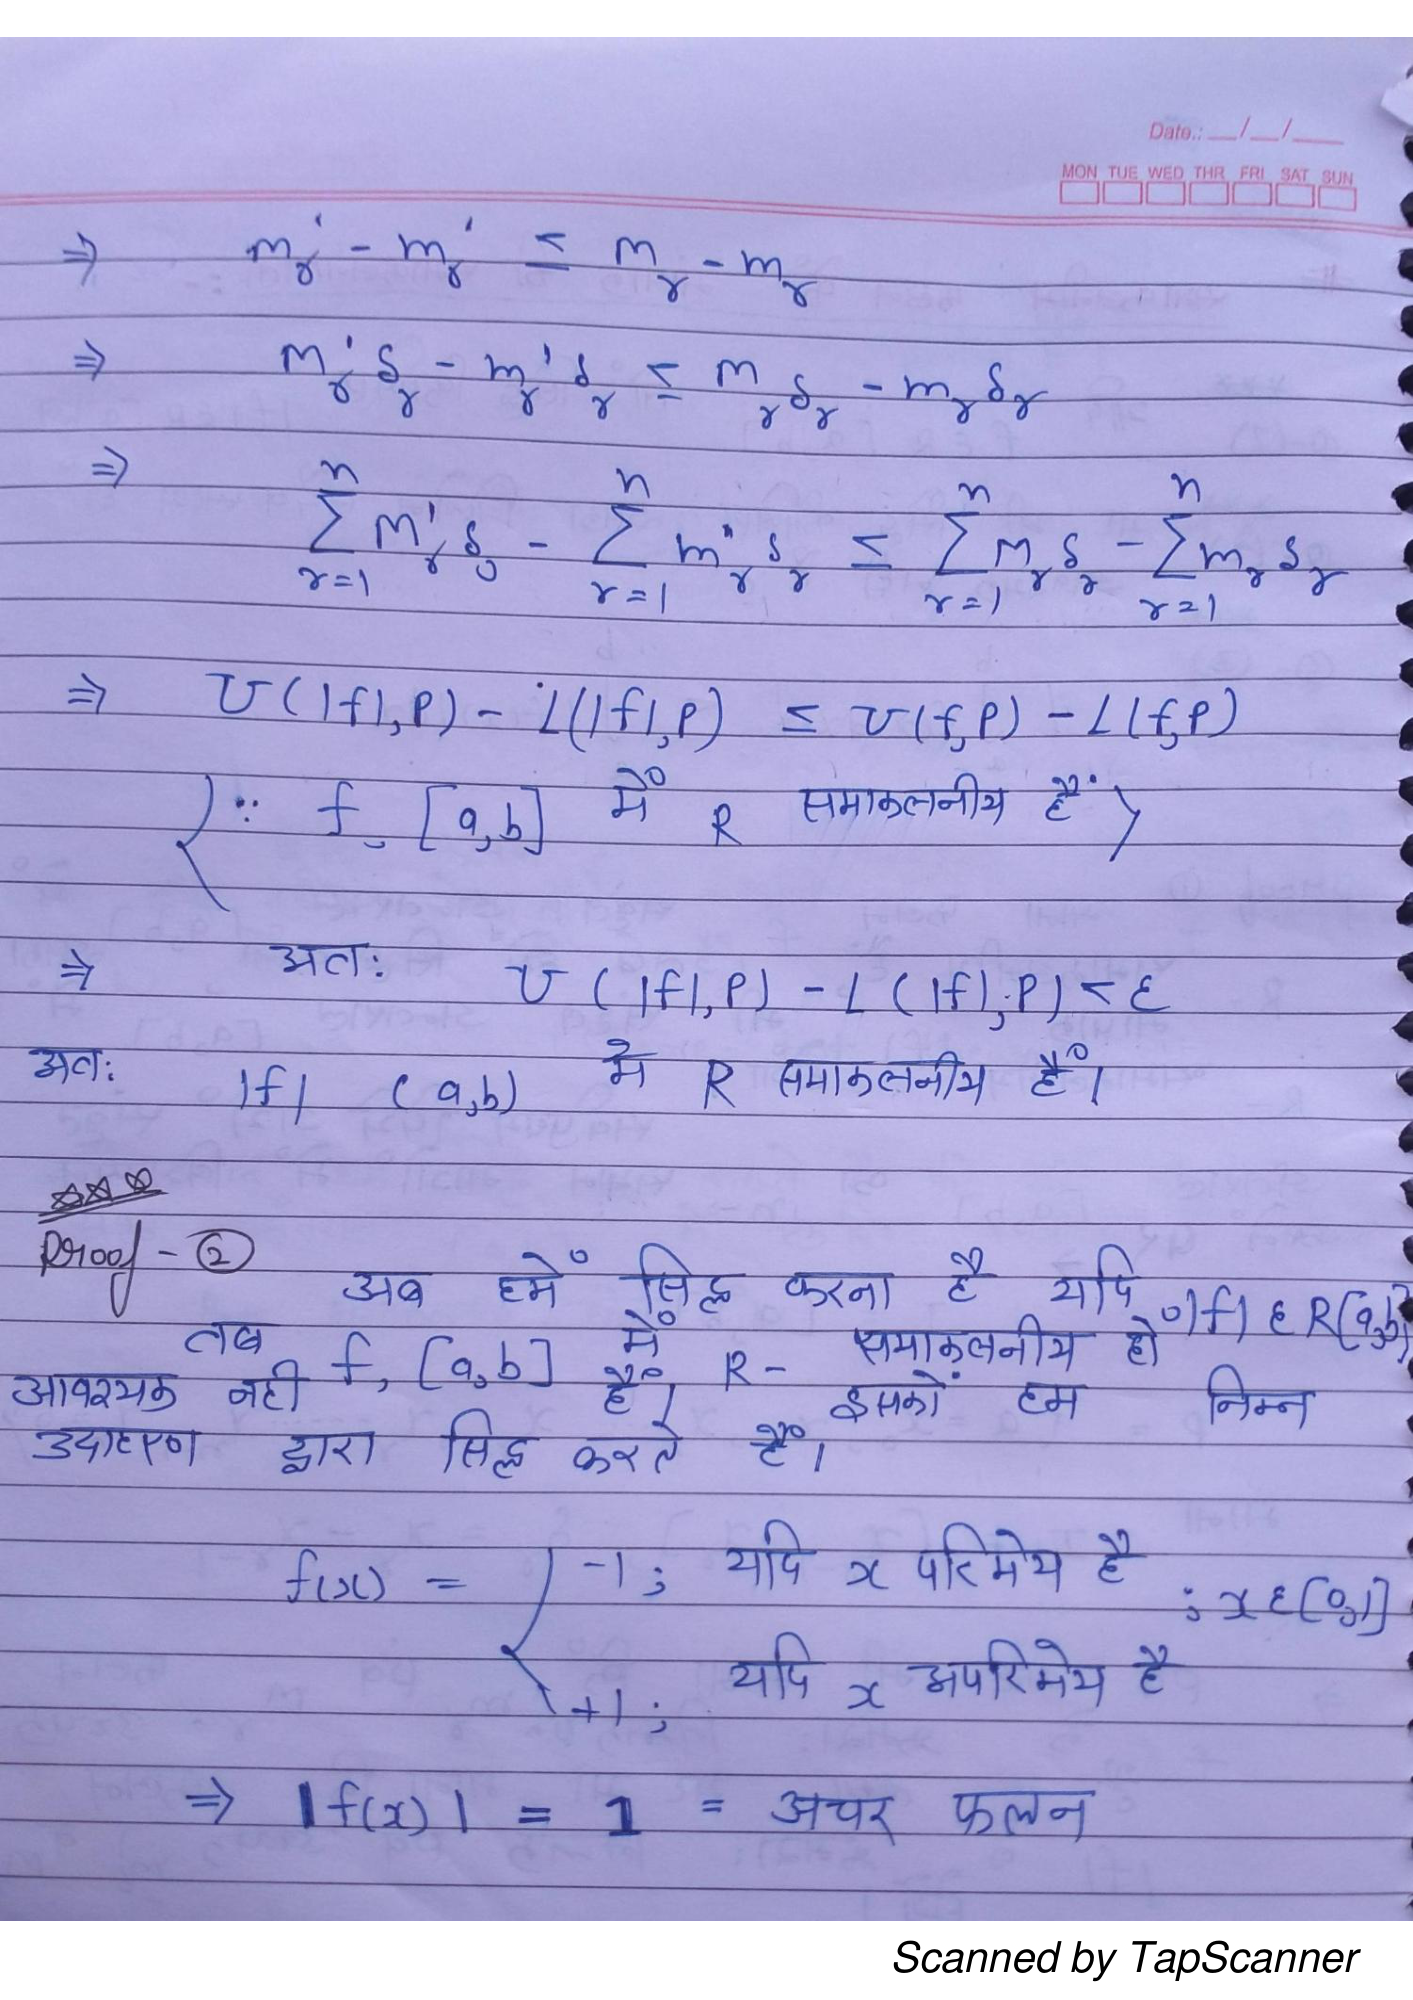 Date.: __/__/___
MON TUE WED THR FRI SAT SUN
⇒ m'r - m'r ≤ mr - mr
⇒ M'r δr - m'r δr ≤ Mr δr - mr δr
⇒ n∑r=1 M'r δr - n∑r=1 m'r δr ≤ n∑r=1 Mr δr - n∑r=1 mr δr
⇒ U(|f|,P) - L(|f|,P) ≤ U(f,P) - L(f,P)
{∵ f, [a,b] में R समाकलनीय हैं}
⇒ अतः U(|f|,P) - L(|f|,P) < ε
अतः |f| (a,b) में R समाकलनीय हैं।
Proof - ②
अब हमें सिद्ध करना है यदि |f| ∈ R[a,b]
तब f, [a,b] में R- समाकलनीय हो
आवश्यक नही हैं। इसकों हम निम्न
उदाहरण द्वारा सिद्ध करते हैं।
f(x) = { -1; यदि x परिमेय है
; x ∈ [0,1]
+1; यदि x अपरिमेय है
⇒ |f(x)| = 1 = अचर फलन
Scanned by TapScanner